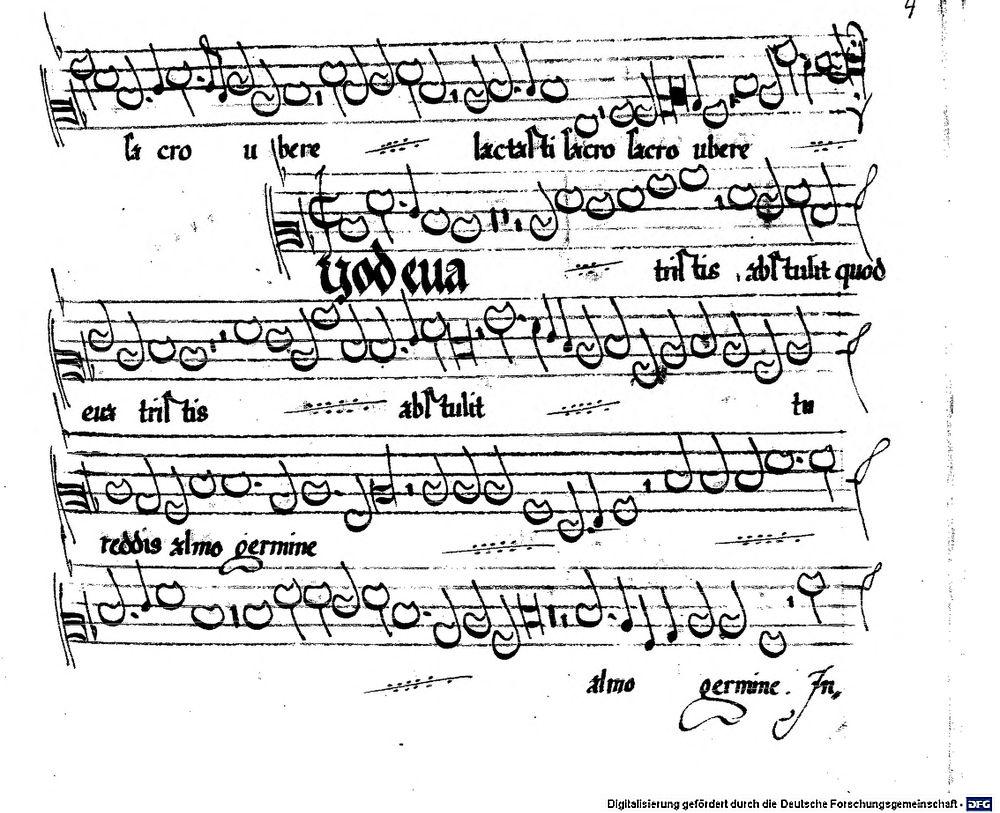 4
sa cro u bere lactasti sacro sacro ubere
Quod eua tristis abstulit quod
eua tristis abstulit tu
reddis almo germine
almo germine. In,
Digitalisierung gefördert durch die Deutsche Forschungsgemeinschaft - DFG